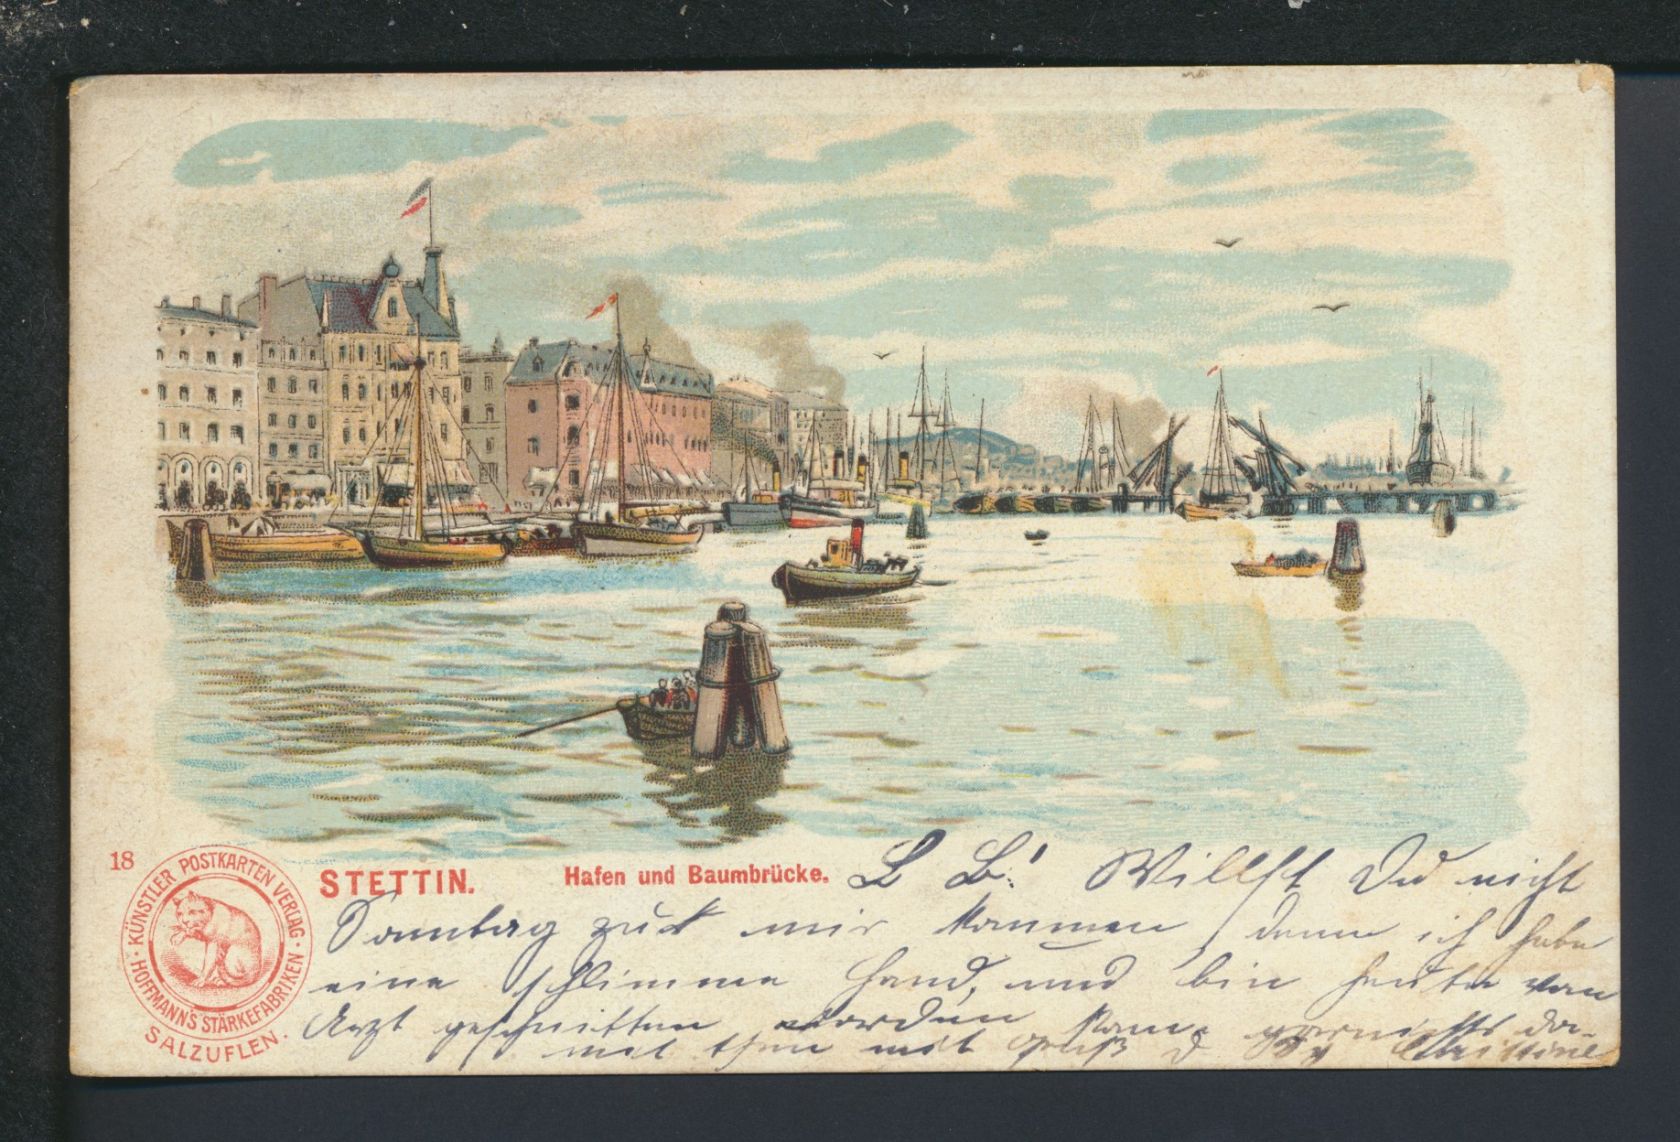 18
KÜNSTLER POSTKARTEN VERLAG · HOFFMANN'S STÄRKEFABRIKEN ·
SALZUFLEN.
STETTIN.
Hafen und Baumbrücke.
L B! Willst Du nicht
Sonntag zu mir kommen, denn ich habe
eine schlimme Hand, und bin heute vom
Arzt geschnitten worden kann garnichts da-
mit thun mit Gruß D